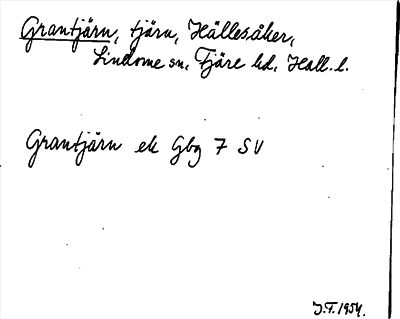 Grantjärn, tjärn, Hällesåker,
Lindome sn, Fjäre hd, Hall. l.
Grantjärn ek Gbg 7 SV
J.F. 1954.